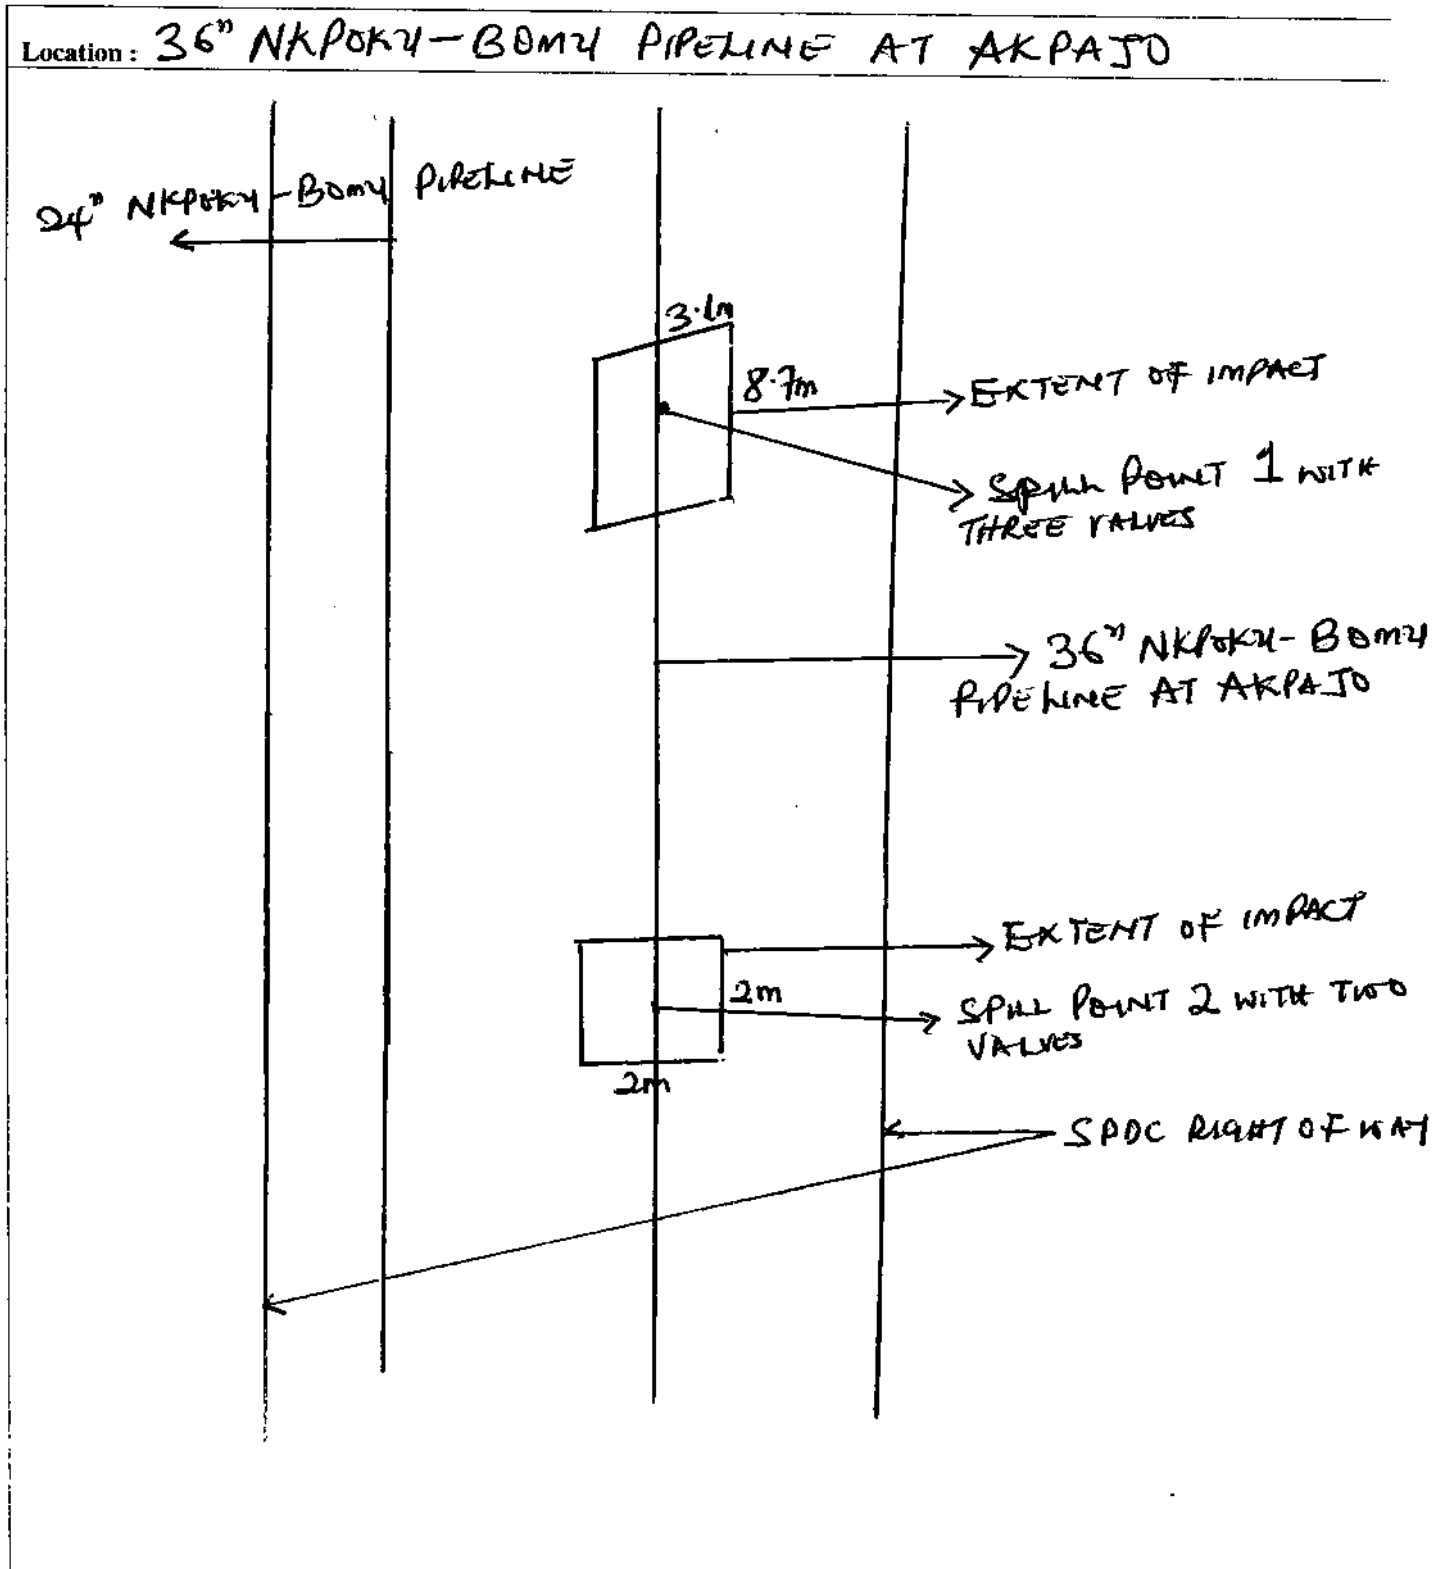 Location : 36" NKPOKU-BOMU PIPELINE AT AKPAJO
24" NKPOKU-BOMU PIPELINE
3.1m
8.7m
EXTENT OF IMPACT
SPILL POINT 1 WITH
THREE VALVES
36" NKPOKU-BOMU
PIPELINE AT AKPAJO
EXTENT OF IMPACT
2m
SPILL POINT 2 WITH TWO
VALVES
2m
SPDC RIGHT OF WAY